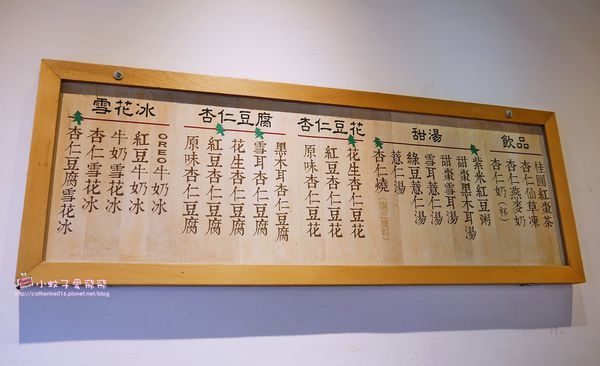 雪花冰
OREO牛奶冰
紅豆牛奶冰
牛奶雪花冰
杏仁雪花冰
杏仁豆腐雪花冰
杏仁豆腐
黑木耳杏仁豆腐
雪耳杏仁豆腐
花生杏仁豆腐
紅豆杏仁豆腐
原味杏仁豆腐
杏仁豆花
花生杏仁豆花
紅豆杏仁豆花
原味杏仁豆花
甜湯
紫米紅豆粥
甜棗黑木耳湯
甜棗雪耳湯
雪耳薏仁湯
綠豆薏仁湯
薏仁湯
杏仁燒
飲品
桂圓紅棗茶
杏仁仙草凍
杏仁燕麥奶
杏仁奶(杯)
小蚊子愛飛飛
http://catherine016.pixnet.net/blog